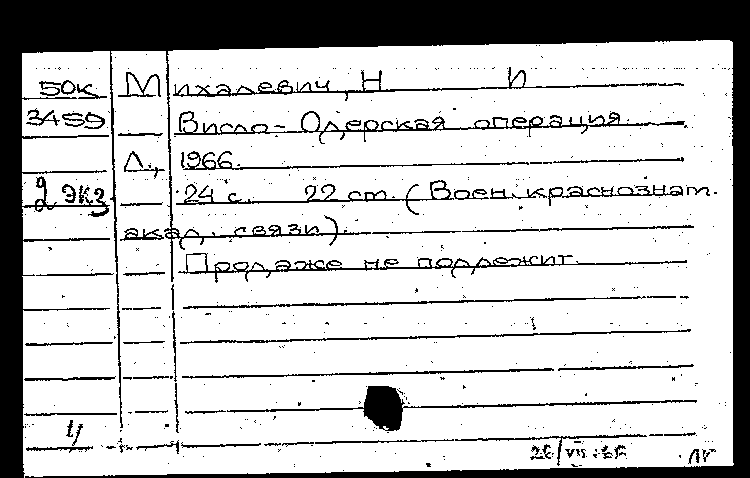 50к Михалевич, Н И
3459 Висло-Одерская операция.
Л., 1966.
2 экз 24 с. 22 см. (Воен. краснознам.
акад. связи).
Продаже не подлежит.